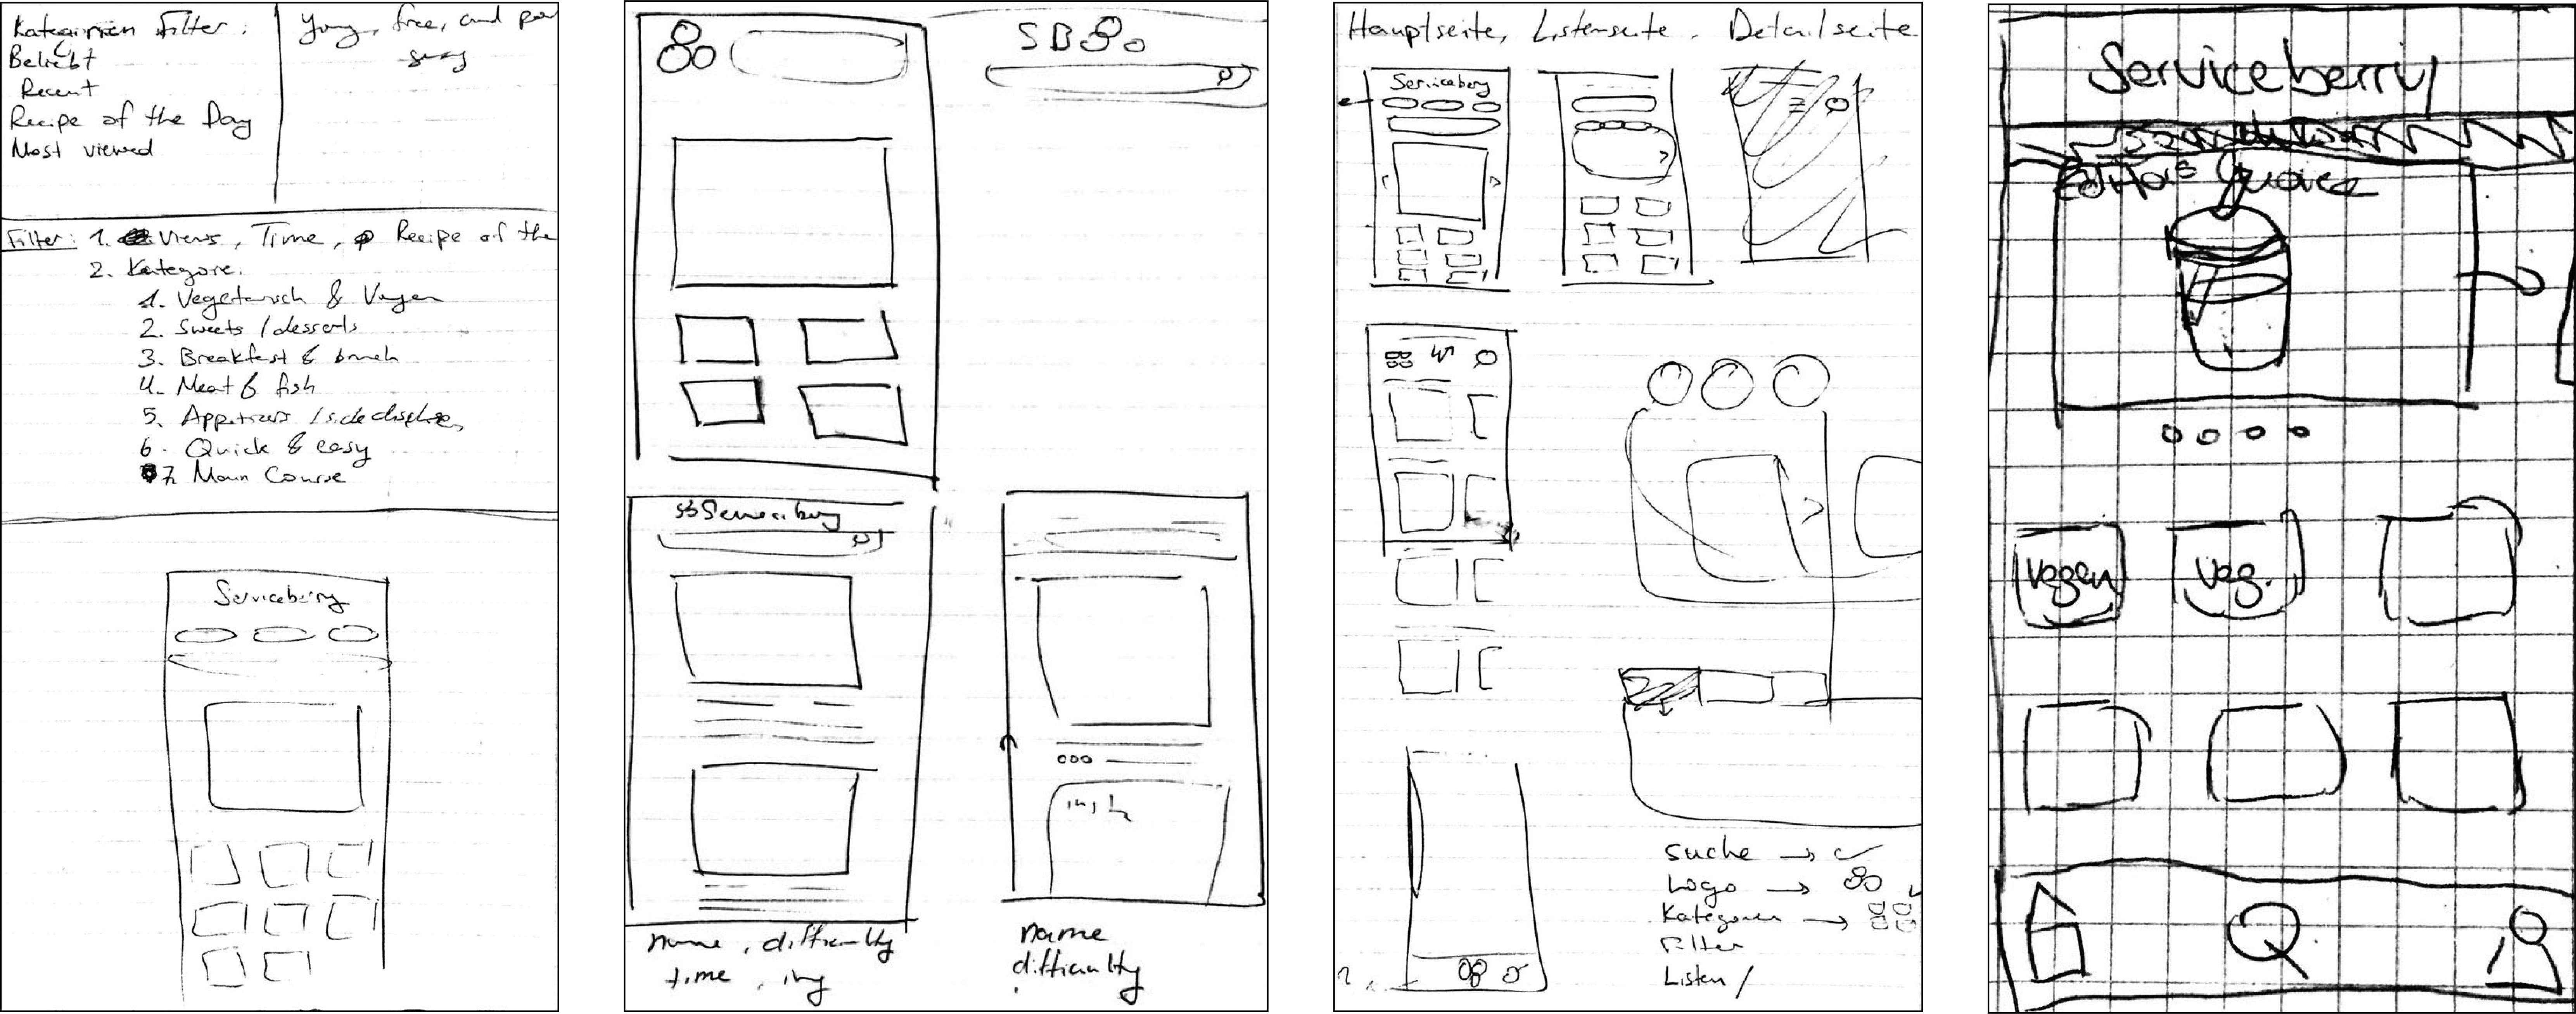 Kategorien Filter:
Beliebt
Recent
Recipe of the Day
Most viewed
Young, free, and
sexy
Filter: 1. Views, Time, Recipe of the
2. Kategorie:
1. Vegetarisch & Vegan
2. Sweets / desserts
3. Breakfast & brunch
4. Meat & fish
5. Appetizers / sidedishes
6. Quick & easy
7. Main Course
Serviceberry
SB
Serviceberry
name, difficulty
time, ing
name
difficulty
Hauptseite, Listenseite, Detailseite
Serviceberry
Suche →
Logo →
Kategorien →
Filter
Listen /
Serviceberry
Editors Choice
vegan
veg.